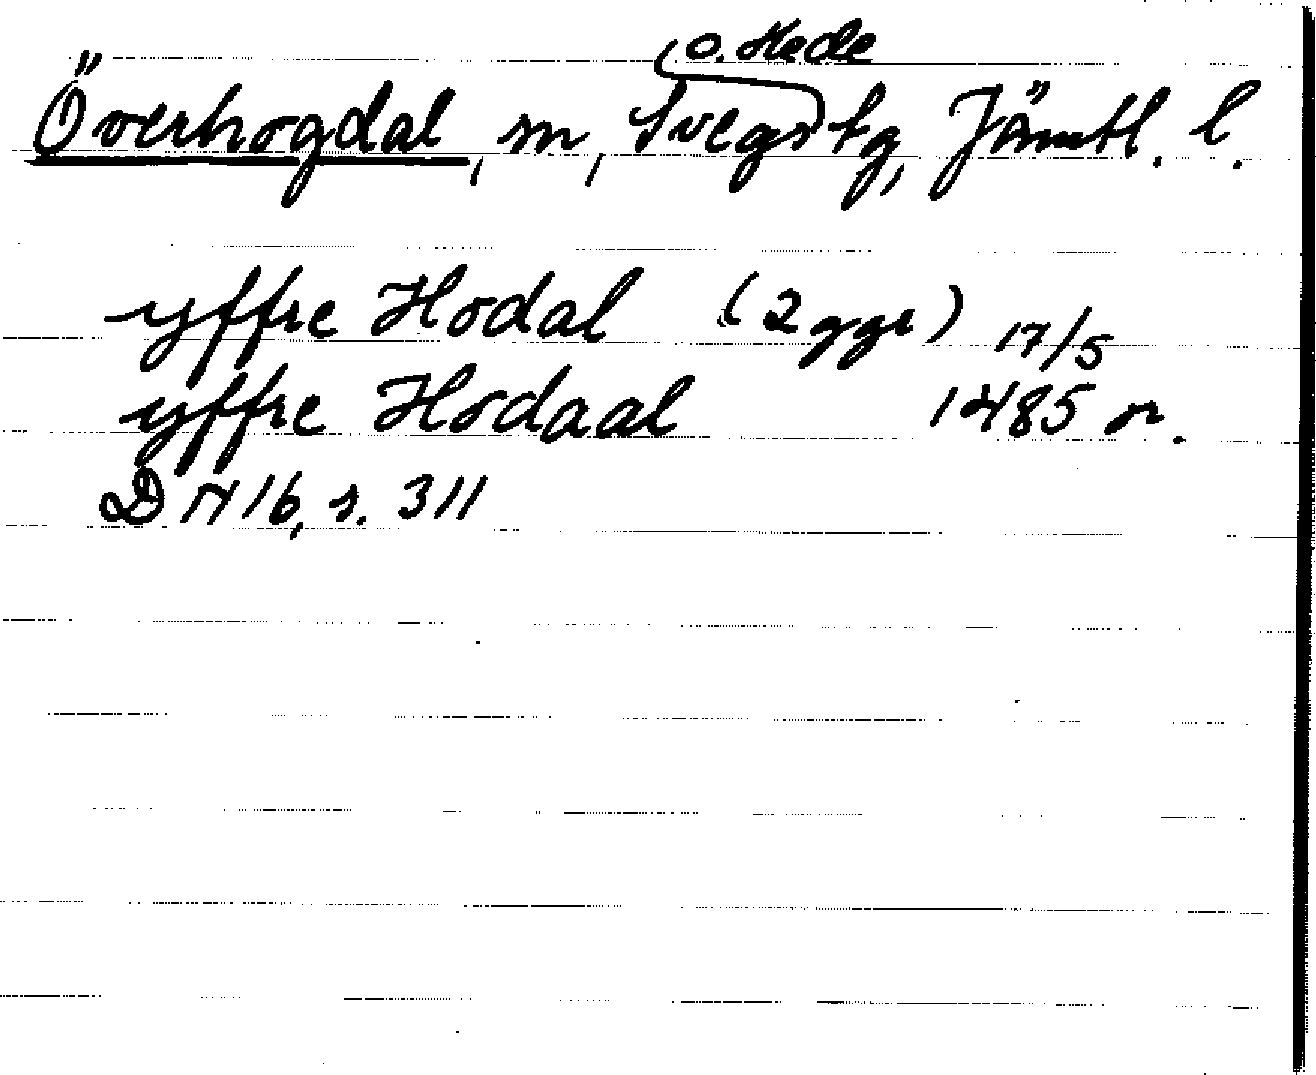 o. Hede
Överhogdal, sn, Svegs tg, Jämtl. l.
yffre Hodal (2 ggr) 17/5
yffre Hodaal 1485 or.
DN 16, s. 311